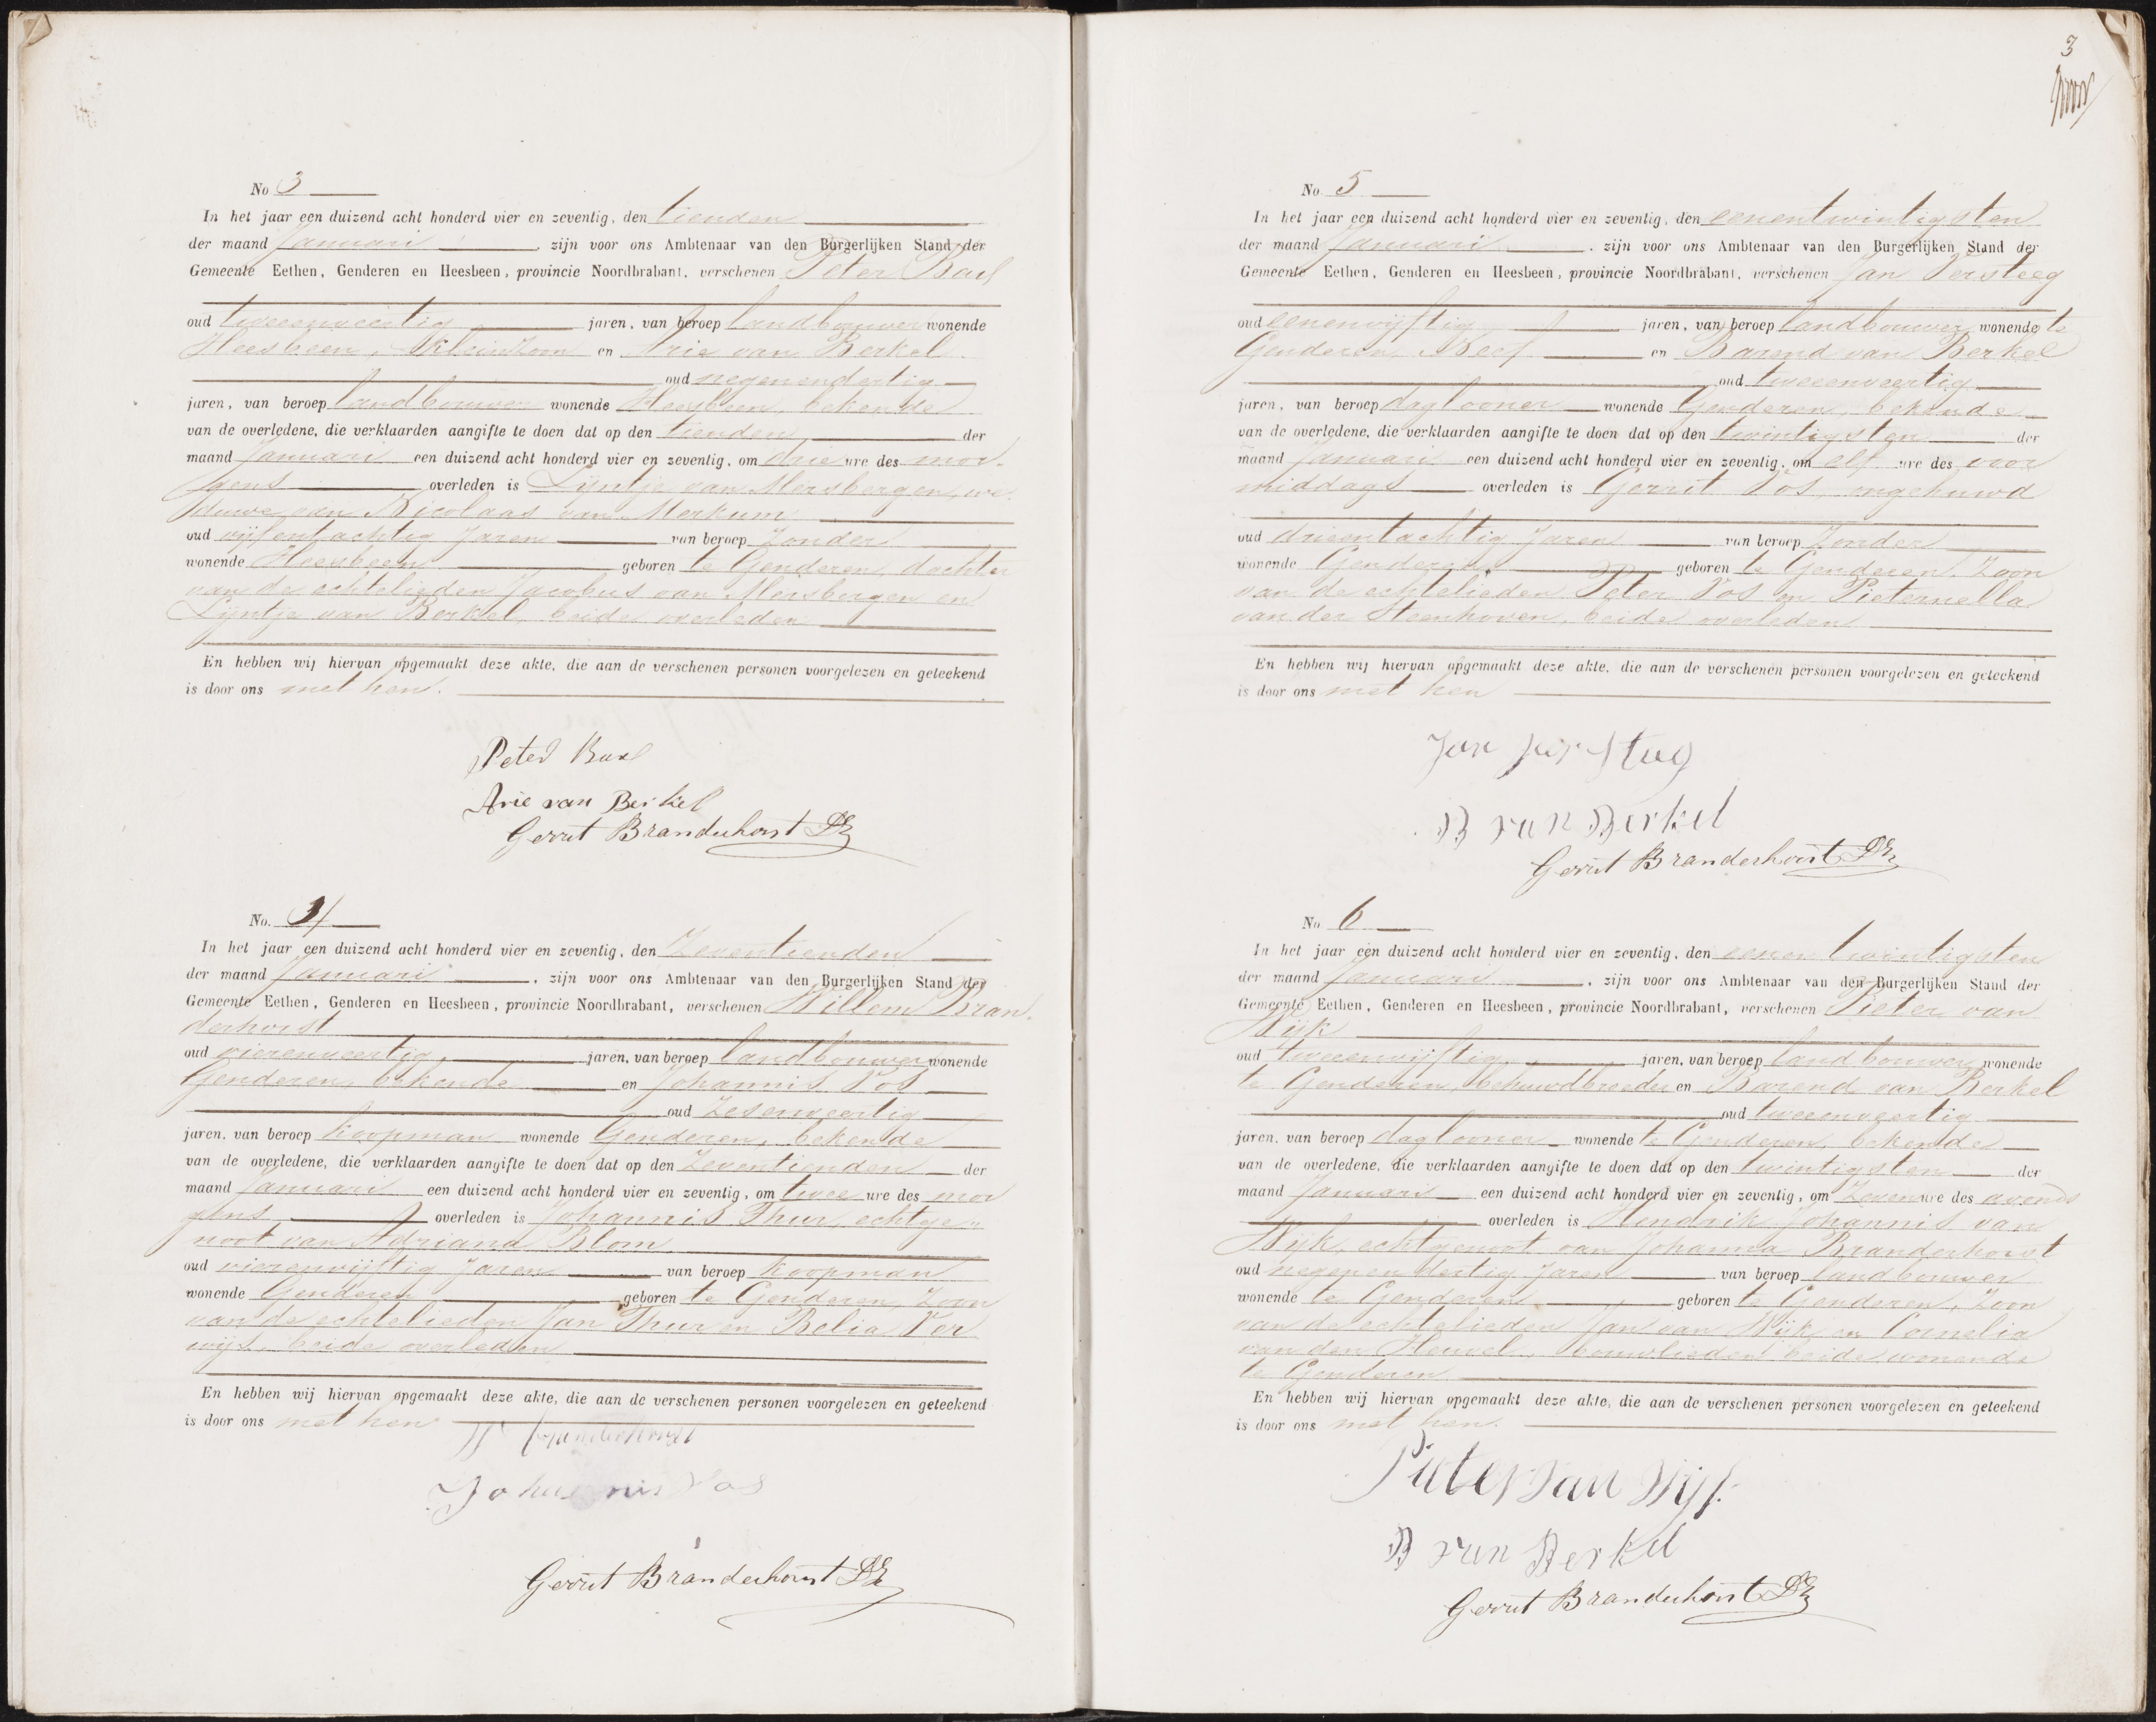 No 3
In het jaar een duizend acht honderd vier en zeventig, den tienden
der maand Januari, zijn voor ons Ambtenaar van den Burgerlijken Stand der
Gemeente Eethen, Genderen en Heesbeen, provincie Noordbrabant, verschenen Peter Bax
oud tweeenveertig jaren, van beroep landbouwer wonende
Heesbeen, Kleinzoon en Arie van Berkel
oud negenendertig
jaren, van beroep landbouwer wonende Heesbeen, bekende
van de overledene, die verklaarden aangifte te doen dat op den tienden der
maand Januari een duizend acht honderd vier en zeventig, om drie ure des mor-
gens overleden is Lijntje van Mersbergen, we
duwe van Nicolaas van Merkum
oud vijfentachtig Jaren van beroep Zonder
wonende Heesbeen geboren te Genderen, dochter
van de echtelieden Jacobus van Mersbergen en
Lijntje van Berkel, beide overleden
En hebben wij hiervan opgemaakt deze akte, die aan de verschenen personen voorgelezen en geteekend
is door ons met hen.
Peter Bax
Arie van Berkel
Gerrit Branderhorst DZ
No. 4
In het jaar een duizend acht honderd vier en zeventig, den Zeventienden
der maand Januari, zijn voor ons Ambtenaar van den Burgerlijken Stand der
Gemeente Eethen, Genderen en Heesbeen, provincie Noordbrabant, verschenen Willem Bran
derhorst
oud vierenveertig, jaren, van beroep landbouwer wonende
Genderen, bekende en Johannis Vos
oud Zesenveertig
jaren, van beroep koopman wonende Genderen, bekende
van de overledene, die verklaarden aangifte te doen dat op den Zeventienden der
maand Januari een duizend acht honderd vier en zeventig, om twee ure des mor
gens overleden is Johannis Thur, echtge-
noot van Adriana Blom
oud vierenvijftig Jaren van beroep Koopman
wonende Genderen geboren te Genderen, Zoon
van de echtelieden Jan Thur en Belia Ver
wijs, beide overleden
En hebben wij hiervan opgemaakt deze akte, die aan de verschenen personen voorgelezen en geteekend
is door ons met hen
W Branderhorst
Johannis Vos
Gerrit Branderhorst DZ
3
No 5
In het jaar een duizend acht honderd vier en zeventig, den eenentwintigsten
der maand Januari, zijn voor ons Ambtenaar van den Burgerlijken Stand der
Gemeente Eethen, Genderen en Heesbeen, provincie Noordbrabant, verschenen Jan Versteeg
oud eenenvijftig jaren, van beroep landbouwer, wonende te
Genderen, Neef en Barend van Berkel
oud tweeenveertig
jaren, van beroep daglooner wonende Genderen, bekende
van de overledene, die verklaarden aangifte te doen dat op den twintigsten der
maand Januari een duizend acht honderd vier en zeventig, om elf ure des voor
middags overleden is Gerrit Vos, ongehuwd
oud drieentachtig Jaren van beroep Zonder
wonende Genderen geboren te Genderen, Zoon
van de echtelieden Peter Vos en Pieternella
van der Steenhoven, beide overleden
En hebben wij hiervan opgemaakt deze akte, die aan de verschenen personen voorgelezen en geteekend
is door ons met hen
Jan Versteeg
B van Berkel
Gerrit Branderhorst DZ
No 6
In het jaar een duizend acht honderd vier en zeventig, den eenen twintigsten
der maand Januari, zijn voor ons Ambtenaar van den Burgerlijken Stand der
Gemeente Eethen, Genderen en Heesbeen, provincie Noordbrabant, verschenen Pieter van
Wijk
oud tweeenvijftig, jaren, van beroep landbouwer, wonende
te Genderen, behuwdbroeder en Barend van Berkel
oud tweeenveertig
jaren, van beroep daglooner wonende te Genderen, bekende
van de overledene, die verklaarden aangifte te doen dat op den twintigsten der
maand Januari een duizend acht honderd vier en zeventig, om Zeven ure des avonds
overleden is Hendrik Johannis van
Wijk, echtgenoot van Johanna Branderhorst
oud negenendertig Jaren van beroep landbouwer
wonende te Genderen geboren te Genderen, Zoon
van de echtelieden Jan van Wijk en Cornelia
van den Heuvel, bouwlieden beide wonende
te Genderen
En hebben wij hiervan opgemaakt deze akte, die aan de verschenen personen voorgelezen en geteekend
is door ons met hen.
Pieter van Wijk
B van Berkel
Gerrit Branderhorst DZ